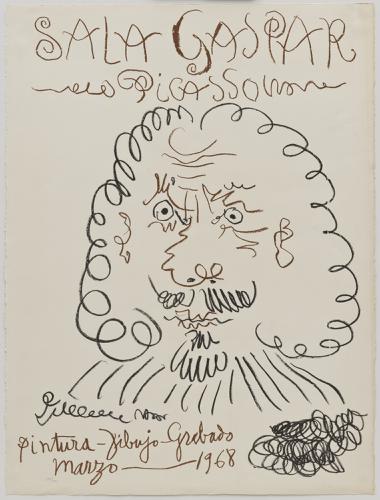 SALA GASPAR
PICASSO
pintura-Dibujo-Grabado
marzo — 1968